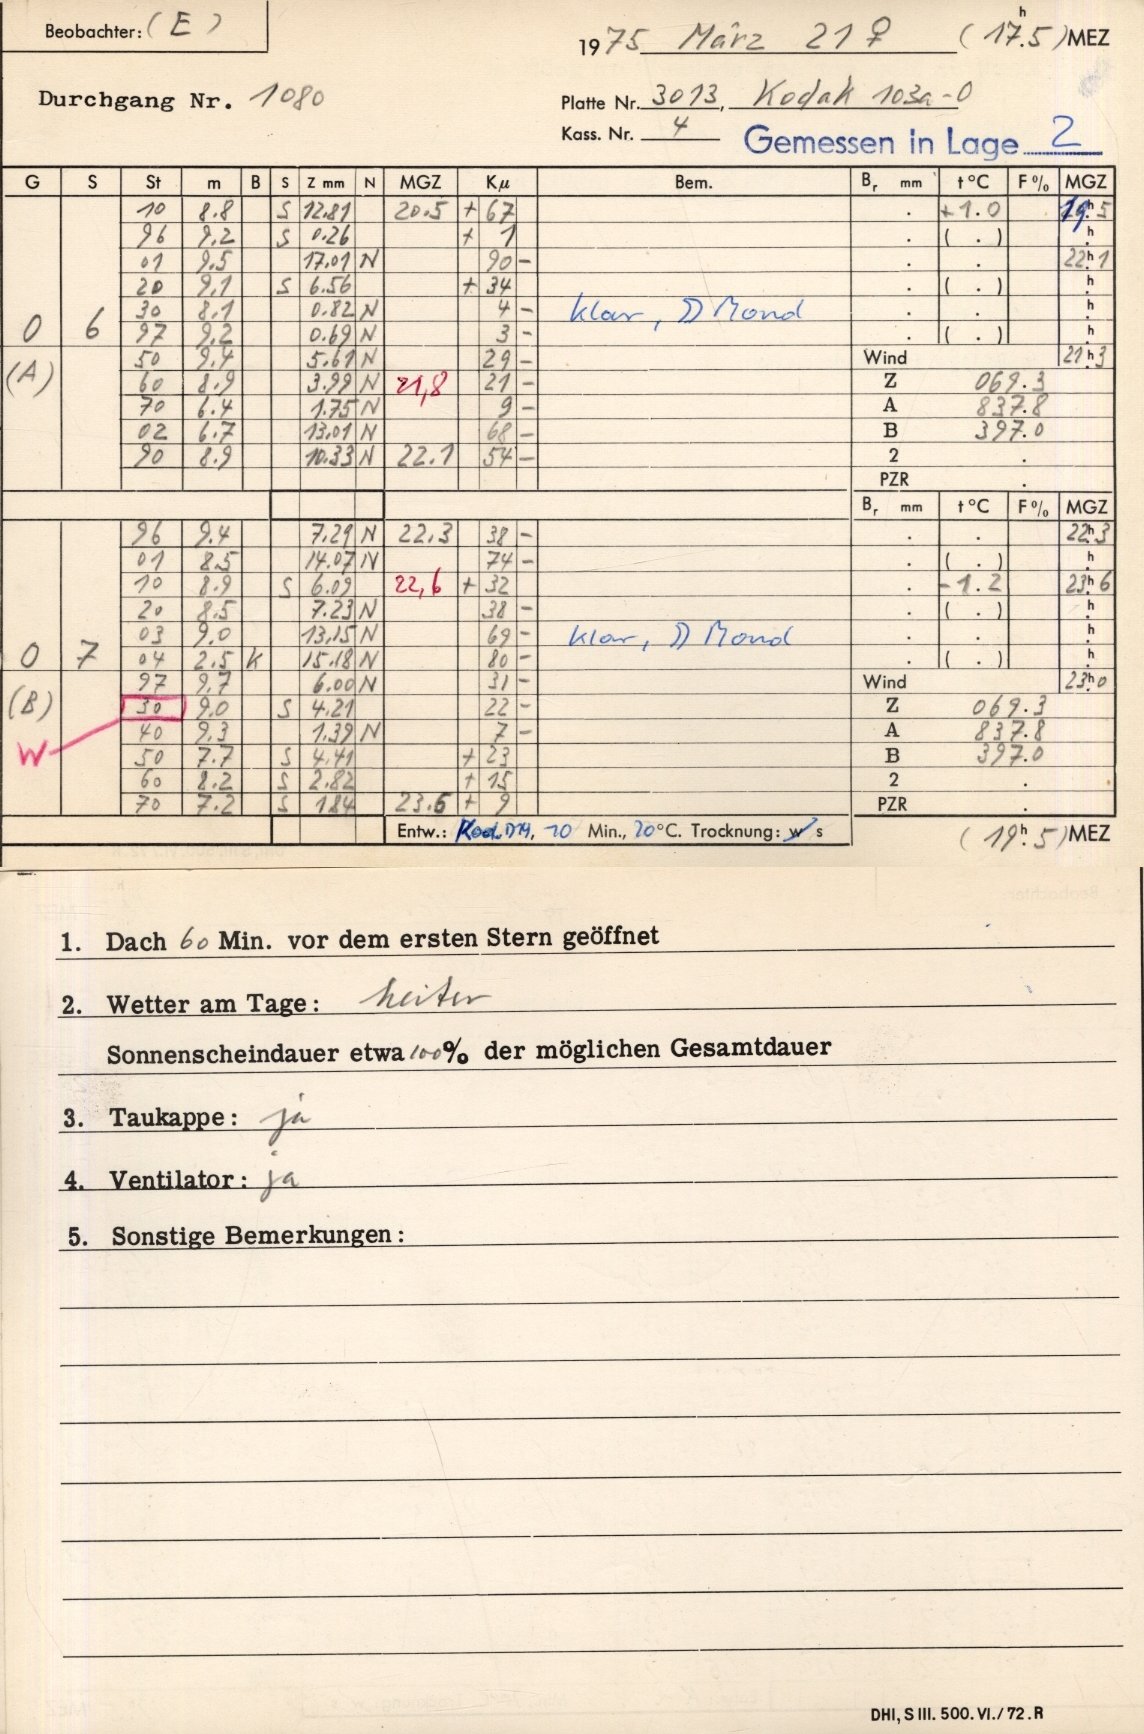 Beobachter: (E)
1975 März 21 ♀ (17h.5) MEZ
Durchgang Nr. 1080
Platte Nr. 3013, Kodak 103a-O
Kass. Nr. 4
Gemessen in Lage 2
G S St m B S Z mm N MGZ Kμ Bem. Br mm t°C F% MGZ
10 8.8 S 12.81 20.5 + 67 . +1.0 19h5
96 9.2 S 0.26 + 1 . ( . ) h.
01 9.5 17.01 N 90 - . . 22h1
20 9.1 S 6.56 + 34 . ( . ) h.
30 8.1 0.82 N 4 - klar, ☽ Mond . . h.
0 6 97 9.2 0.69 N 3 - . ( . ) h.
50 9.4 5.61 N 29 - Wind 21h3
(A) 60 8.9 3.99 N 21,8 21 - Z 069.3
70 6.4 1.75 N 9 - A 837.8
02 6.7 13.01 N 68 - B 397.0
90 8.9 10.33 N 22.1 54 - 2 .
PZR .
Br mm t°C F% MGZ
96 9.4 7.29 N 22.3 38 - . . 22h3
01 8.5 14.07 N 74 - . ( . ) h.
10 8.9 S 6.09 22,6 + 32 . -1.2 23h6
20 8.5 7.23 N 38 - . ( . ) h.
03 9.0 13.15 N 69 - klar, ☽ Mond . . h.
0 7 04 2.5 K 15.18 N 80 - . ( . ) h.
97 9.7 6.00 N 31 - Wind 23h0
(B) 30 9.0 S 4.21 22 - Z 069.3
W 40 9.3 1.39 N 7 - A 837.8
50 7.7 S 4.41 + 23 B 397.0
60 8.2 S 2.82 + 15 2 .
70 7.2 S 1.84 23.6 + 9 PZR .
Entw.: Kod. D19, 10 Min., 20°C. Trocknung: w s
(19h.5) MEZ
1. Dach 60 Min. vor dem ersten Stern geöffnet
2. Wetter am Tage: heiter
Sonnenscheindauer etwa 100% der möglichen Gesamtdauer
3. Taukappe: ja
4. Ventilator: ja
5. Sonstige Bemerkungen:
DHI, S III. 500. VI./72.R